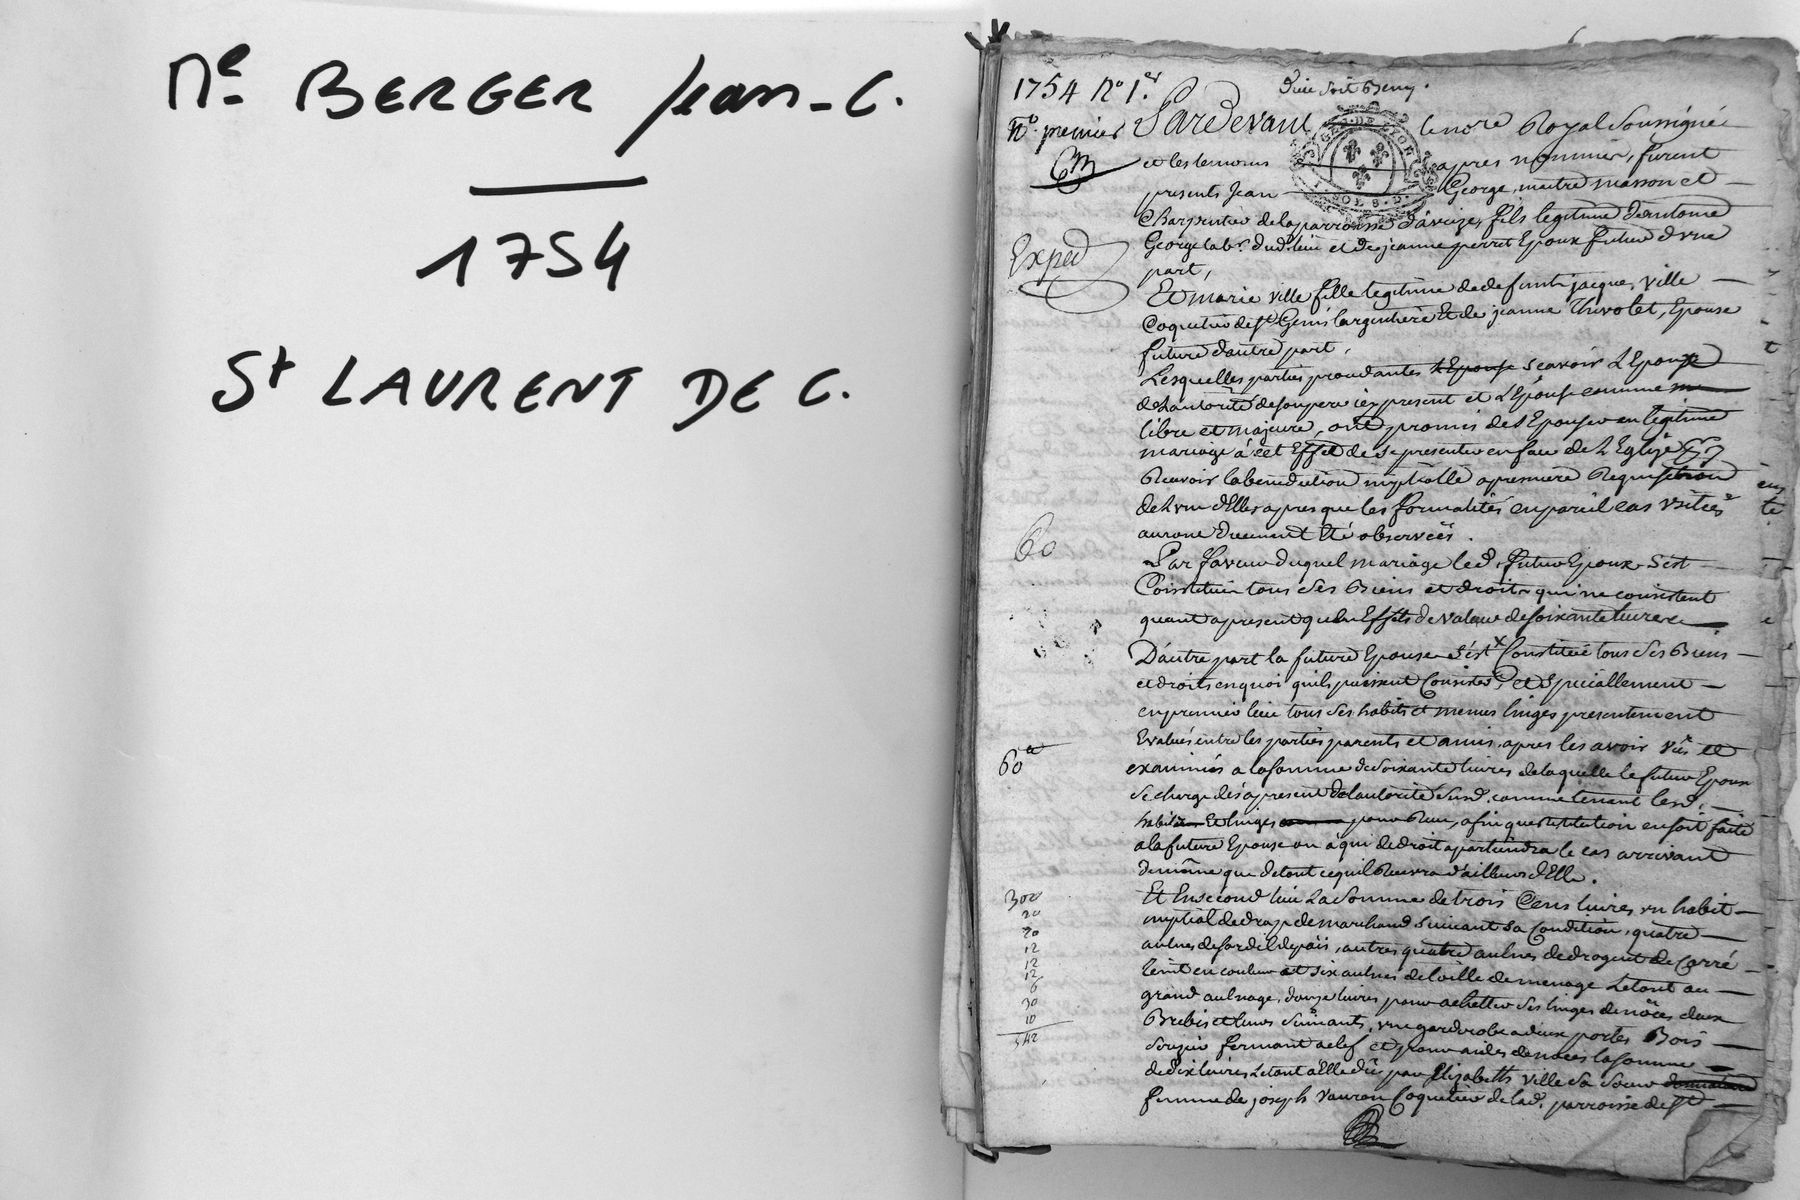 Me BERGER Jean-C.
1754
St LAURENT DE C.
1754 No 1.er
Dieu soit Beny.
No. premier Pardevant le no.re Royal Soussigné
et les temoins apres nommés, furent
presents Jean George, maitre masson et
Charpentier de la parroisse d'aveize, fils legitime d'antoine
George lab.r dud. lieu et de jeanne perret Epoux futur d'une
part,
Exped
Et marie ville fille legitime de defunt jacque ville
Coquetier de St Genis largentiere Et de jeanne Thivolet, Epouse
future d'autre part,
Lesquelles parties procedantes Scavoir L'Epoux
de l'autorité de son pere icy present et L'Epouse comme
libre et majeure, ont promis de s'Epouser en legitime
mariage a cet Effet de se presenter en face de L'Eglise
Recevoir la benediction nuptialle a premiere Requisition
de l'un d'Elles apres que les formalités en pareil cas usitées
auront duement Eté observées.
60
Par faveur duquel mariage led. futur Epoux s'est
Constitué tous ses Biens et droits qui ne consistent
quant a present qu'en Effets de valeur de soixante livres
D'autre part la future Epouse s'est Constitué tous ses Biens
et droits en quoi quils puissent Consister, et speciallement
en premier lieu tous ses habits et menus linges presentement
Evalués entre les parties parents et amis, apres les avoir vûs et
60
examinés a la somme de soixante livres de laquelle le futur Epoux
se charge dés apresent de l'autorité susd. comme tenant lesd.
habits Et linges pour Reçus, afin que restitution en soit faite
a la future Epouse ou à qui de droit apartiendra le cas arrivant
de même que de tout ce quil Recevra d'ailleurs d'Elle.
300
Et En second lieu La somme de trois Cens livres, un habit
20
nuptial de drap de marchand suivant sa Condition, quatre
20
aulnes de cordel , autres quatre aulnes de droguet de Carré
12
12
teint en couleur et six aulnes de toille de menage Letout au
12
grand aulnage, douze livres pour achetter des linges de nôces, deux
6
30
Brebis et leurs suivants, une garderobe a deux portes Bois
10
542
Sapin fermant a clef et pour aides de noces la somme
de dix livres, Letout a Elle dû par Elizabeth ville sa soeur
femme de joseph Coquetier de lad. parroisse de St